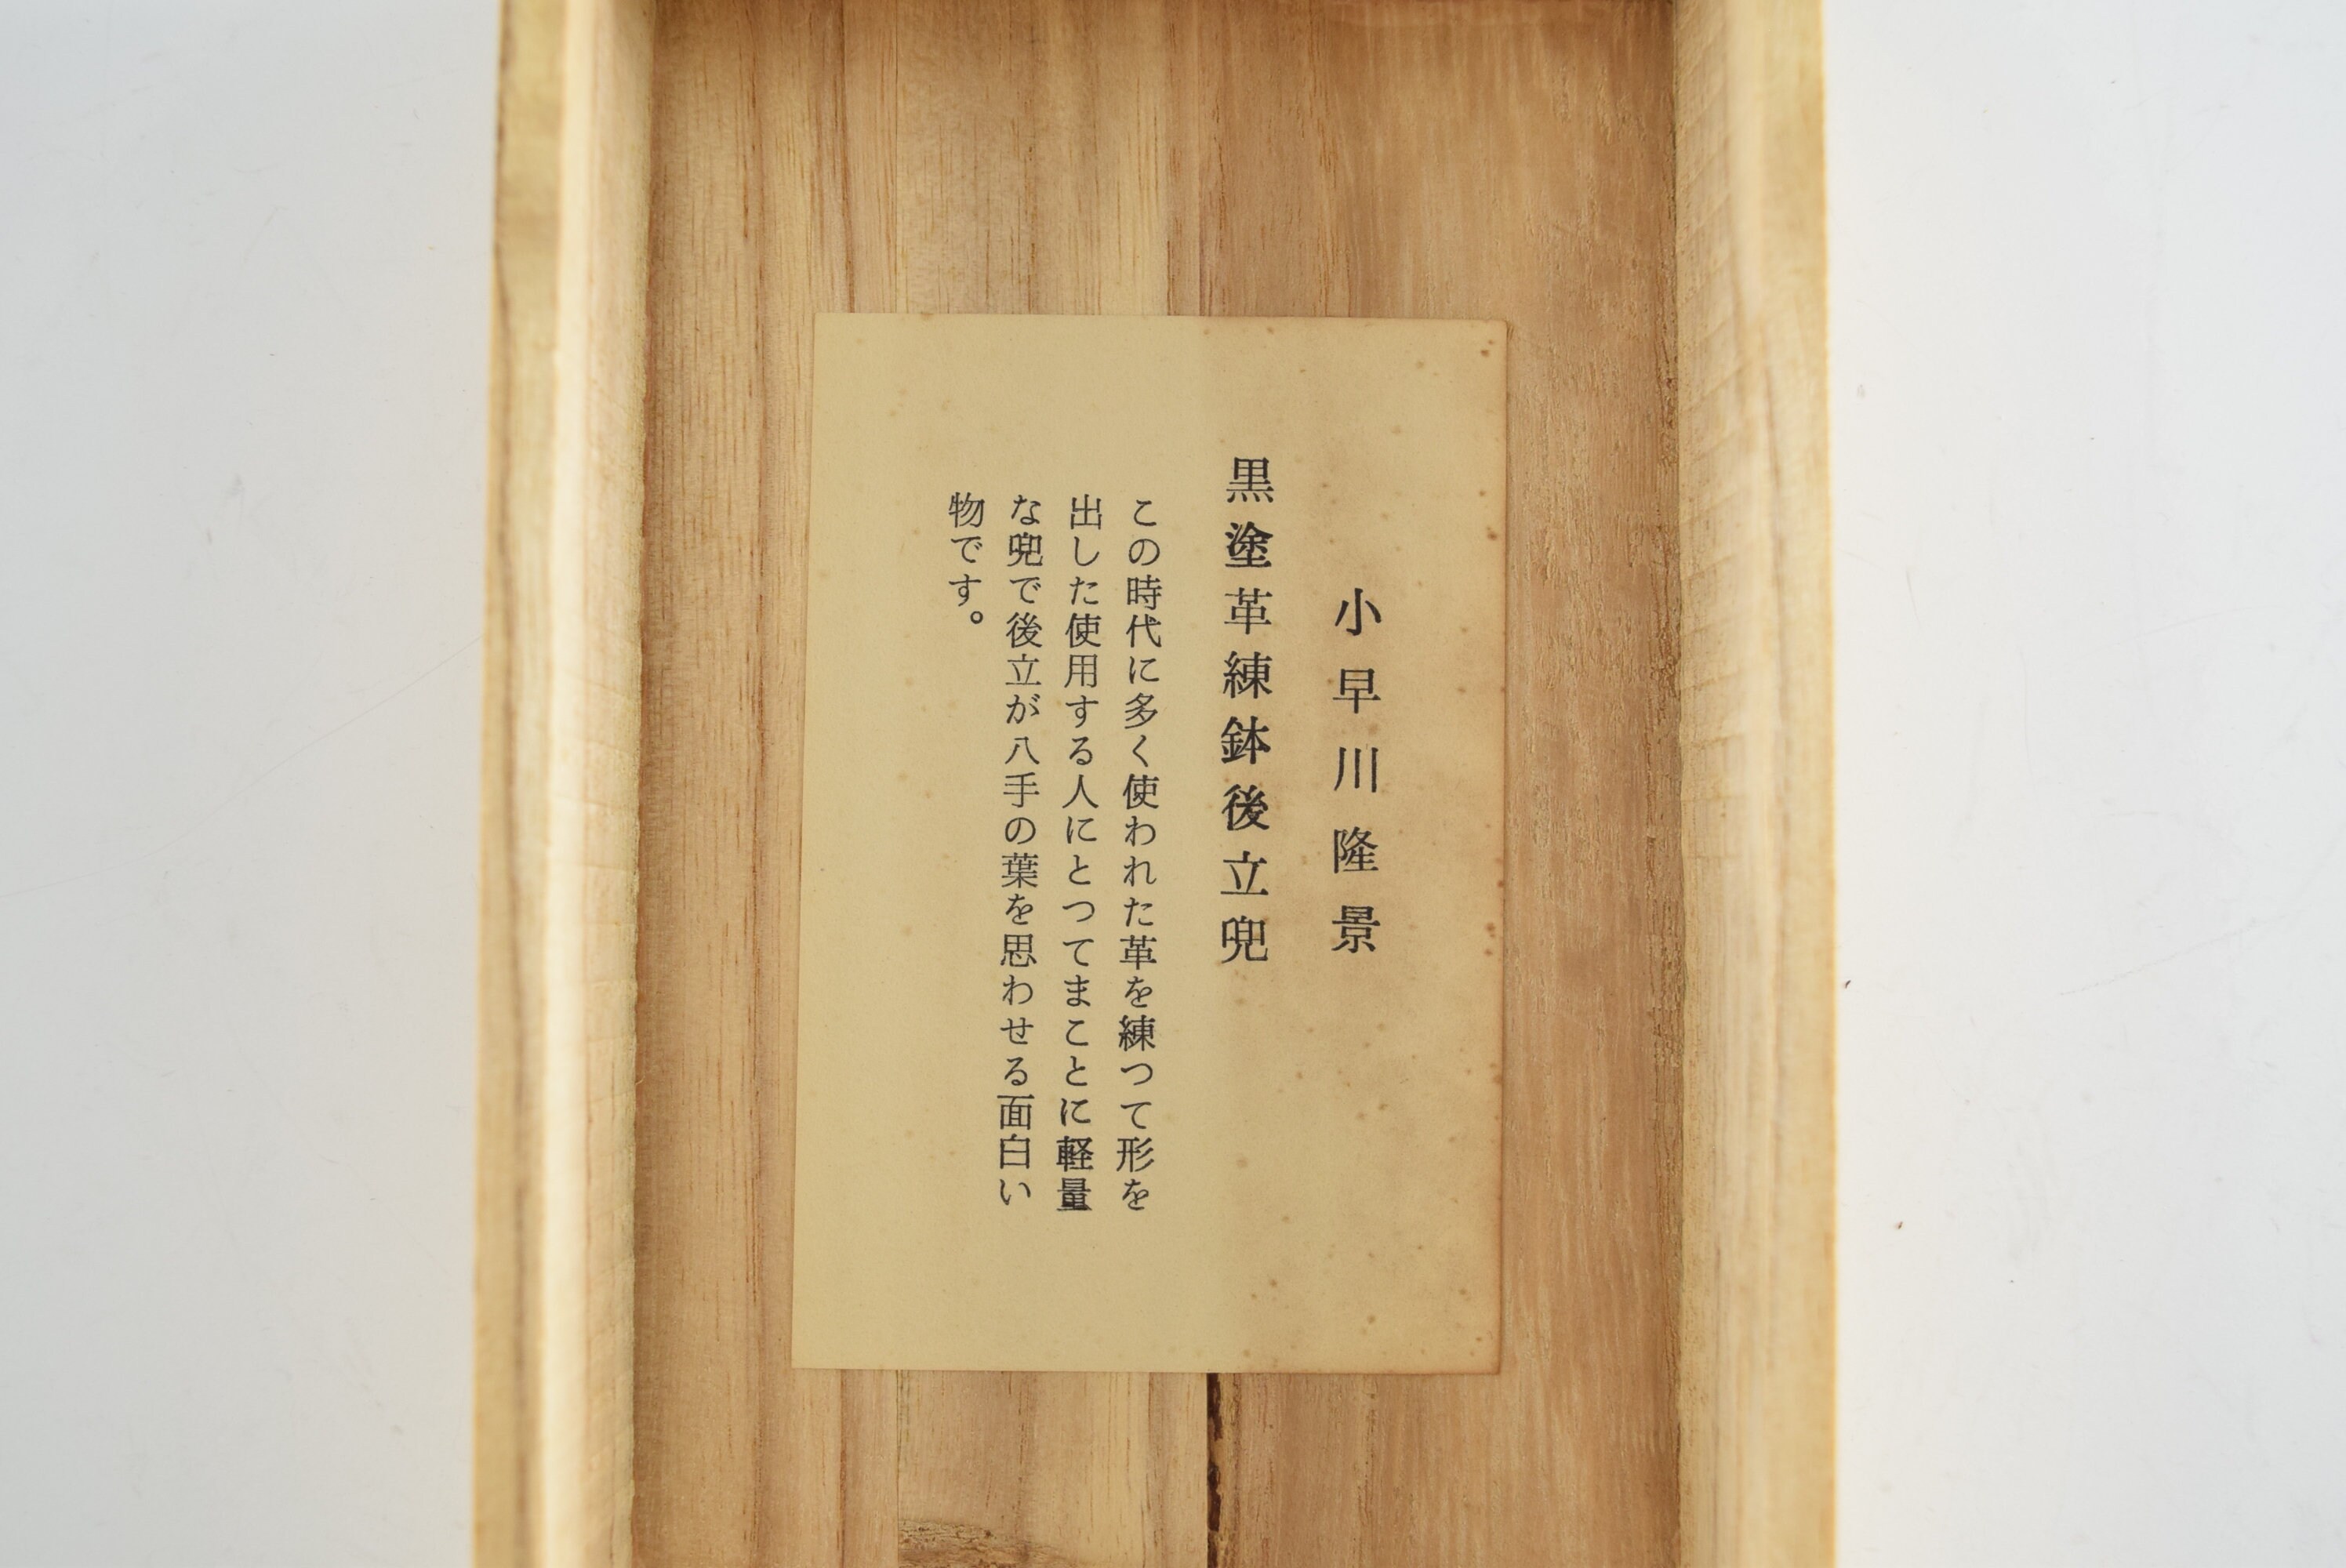 小早川隆景
黒塗革練鉢後立兜
この時代に多く使われた革を練つて形を
出した使用する人にとつてまことに軽量
な兜で後立が八手の葉を思わせる面白い
物です。